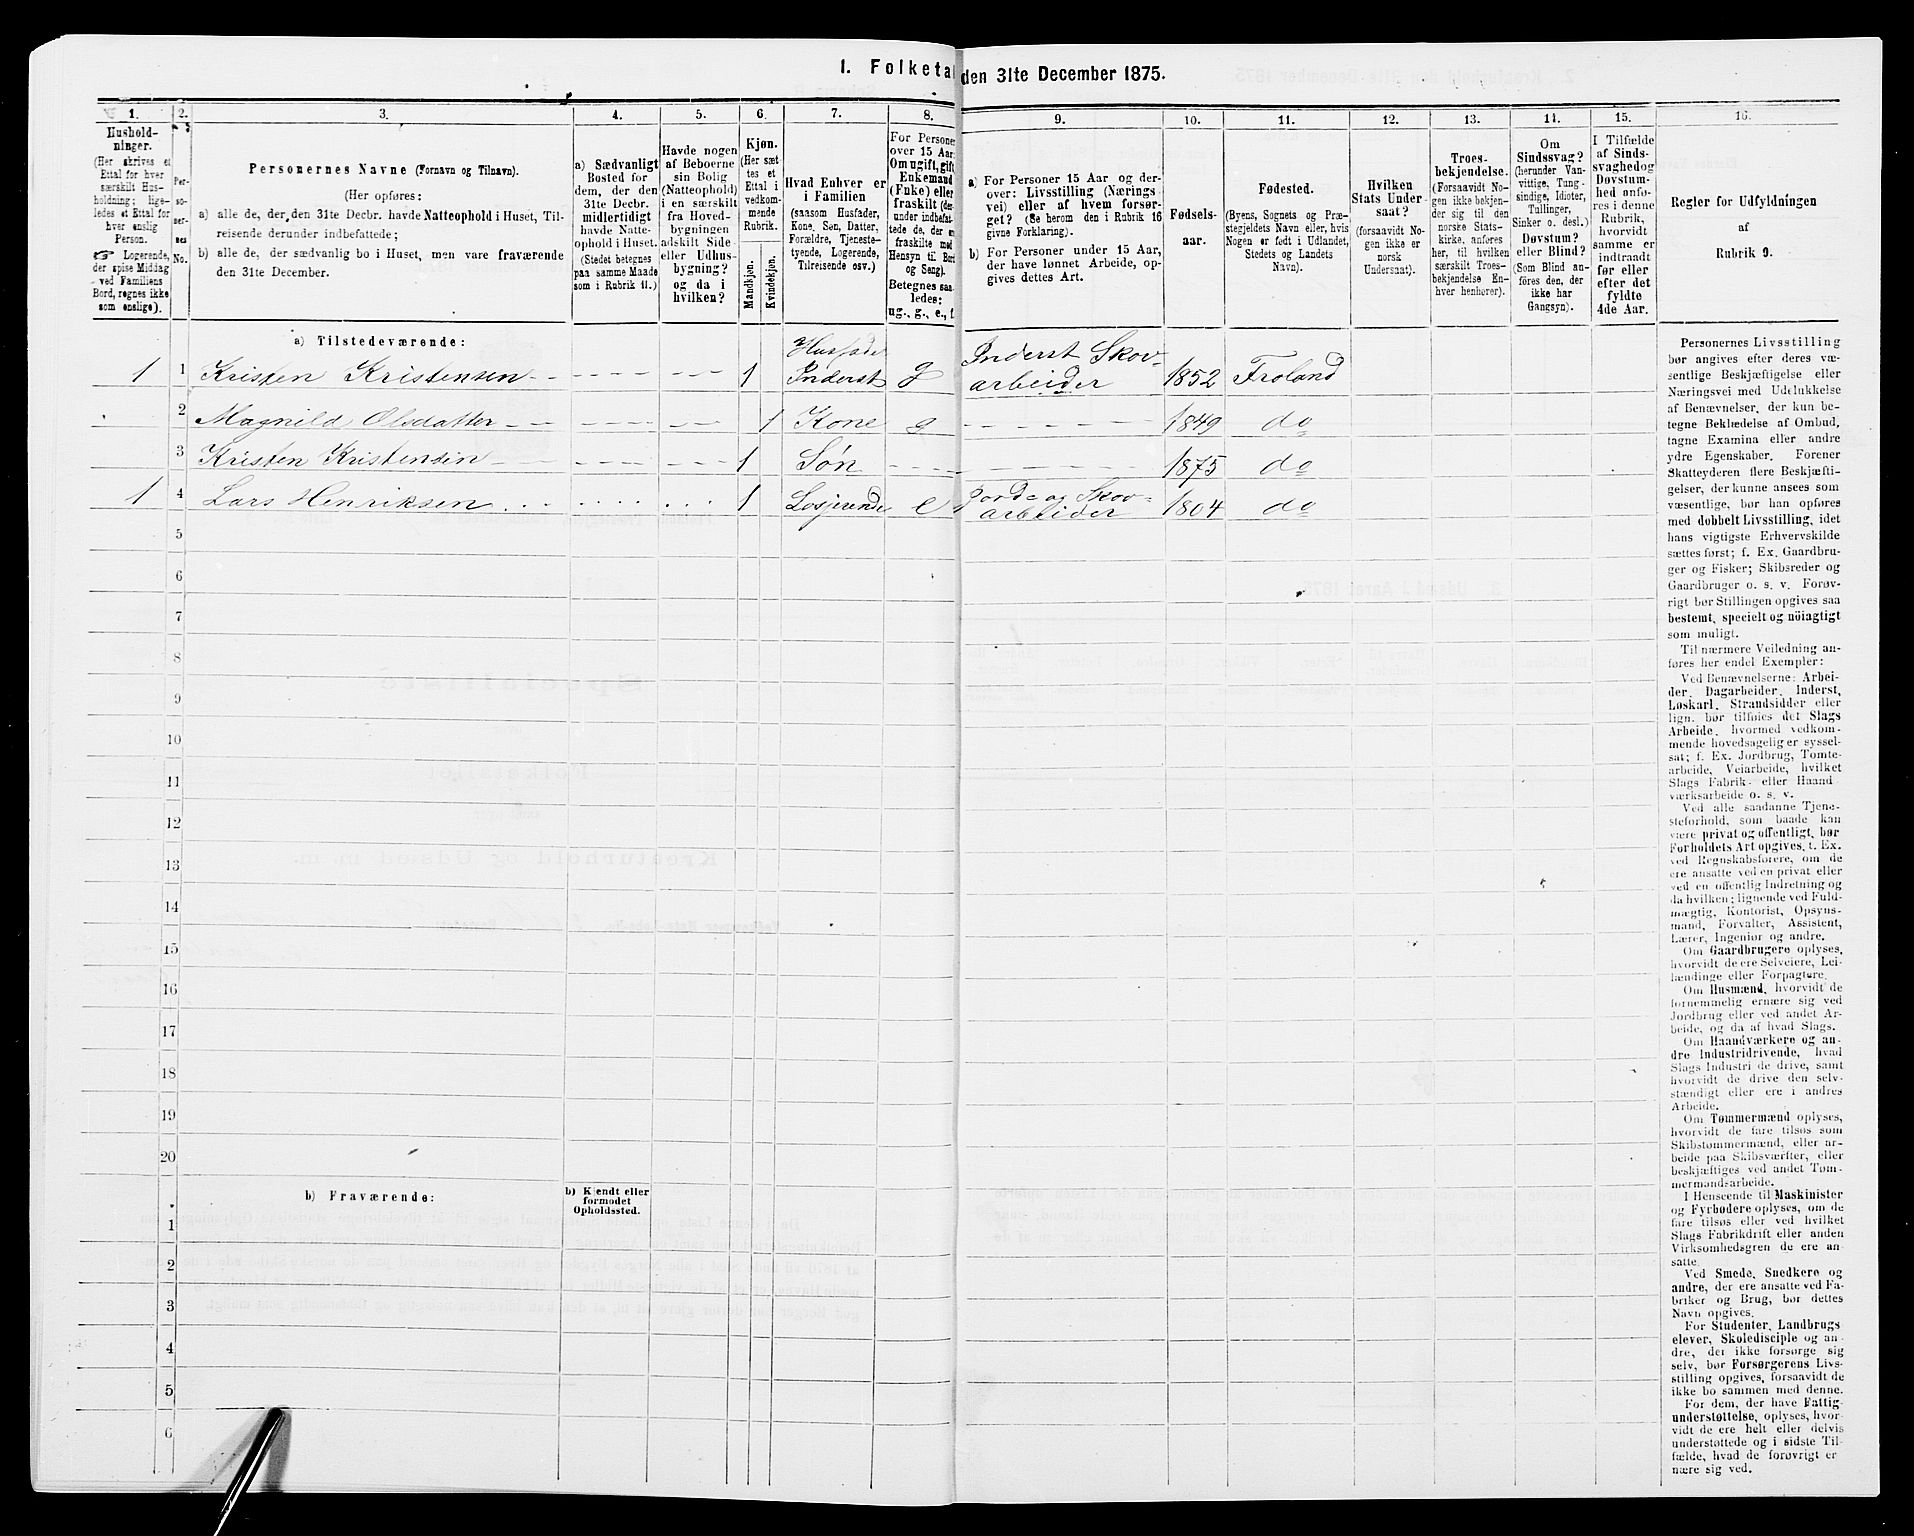 1. Folketal den 31te December 1875.
1. 2. 3. 4. 5. 6. 7. 8. 9. 10. 11. 12. 13. 14. 15. 16.
Hushold-
ninger.
(Her skrives et
Ettal for hver
særskilt Hus-
holdning; lige-
ledes et Ettal for
hver enslig
Person.
☞ Logerende,
der spise Middag
ved Familiens
Bord, regnes ikke
som enslige).
Per-
so-
ner-
nes
No.
Personernes Navne (Fornavn og Tilnavn).
(Her opføres:
a) alle de, der den 31te Decbr. havde Natteophold i Huset, Til-
reisende derunder indbefattede;
b) alle de, der sædvanlig bo i Huset, men vare fraværende
den 31te December.
a) Sædvanligt
Bosted for
dem, der den
31te Decbr.
midlertidigt
havde Natte-
ophold i Huset.
(Stedet betegnes
paa samme Maade
som i Rubrik 11.)
Havde nogen
af Beboerne
sin Bolig
(Natteophold)
i en særskilt
fra Hoved-
bygningen
adskilt Side-
eller Udhus-
bygning?
og da i
hvilken?
Kjøn.
(Her sæt-
tes et
Ettal i
vedkom-
mende
Rubrik.
Mandkjøn.
Kvindekjøn.
Hvad Enhver er
i Familien
(saasom Husfader,
Kone, Søn, Datter,
Forældre, Tjeneste-
tyende, Logerende,
Tilreisende osv.)
For Personer
over 15 Aar:
Om ugift, gift,
Enkemand
(Enke) eller
fraskilt (der-
under indbefat-
tede de, der er
fraskilte med
Hensyn til Bord
og Seng).
Betegnes saa-
ledes:
ug., g., e., f.
a) For Personer 15 Aar og der-
over: Livsstilling (Nærings-
vei) eller af hvem forsør-
get? (Se herom den i Rubrik 16
givne Forklaring).
b) For Personer under 15 Aar,
der have lønnet Arbeide, op-
gives dettes Art.
Fødsels-
aar.
Fødested.
(Byens, Sognets og Præ-
stegjeldets Navn eller, hvis
Nogen er født i Udlandet,
Stedets og Landets
Navn).
Hvilken
Stats Under-
saat?
(forsaavidt No-
gen ikke er
norsk
Undersaat).
Troes-
bekjendelse.
(Forsaavidt No-
gen ikke bekjen-
der sig til den
norske Stats-
kirke, anføres
her, til hvilken
særskilt Troes-
bekjendelse En-
hver henhører).
Om
Sindssvag?
(herunder Van-
vittige, Tung-
sindige, Idioter,
Tullinger,
Sinker o. desl.)
Døvstum?
eller Blind?
(Som Blind an-
føres den, der
ikke har
Gangsyn).
I Tilfælde
af Sinds-
svaghed og
Døvstum-
hed anfø-
res i denne
Rubrik,
hvorvidt
samme er
indtraadt
før eller
efter det
fyldte
4de Aar.
Regler for Udfyldningen
af
Rubrik 9.
a) Tilstedeværende:
1 1 Kristen Kristensen 1 Husfader Inderst g Inderst Skov-
arbeider 1852 Froland
2 Magnild Olsdatter 1 Kone g 1849 do
3 Kristen Kristensen 1 Søn 1875 do
1 4 Lars Henriksen 1 Losjerende e Jord- og Skov-
arbeider 1804 do
5
6
7
8
9
10
11
12
13
14
15
16
17
18
19
20
b) Fraværende:
b) Kjendt eller
formodet
Opholdssted.
1
2
3
4
5
6
Personernes Livsstilling
bør angives efter deres væ-
sentlige Beskjæftigelse eller
Næringsvei med Udelukkelse
af Benævnelser, der kun be-
tegne Beklædelse af Ombud,
tagne Examina eller andre
ydre Egenskaber. Forener
Skatteyderen flere Beskjæfti-
gelser, der kunne ansees som
væsentlige, bør han opføres
med dobbelt Livsstilling, idet
hans vigtigste Erhvervskilde
sættes først; f. Ex. Gaardbru-
ger og Fisker; Skibsreder og
Gaardbruger o. s. v. Forøv-
rigt bør Stillingen opgives saa
bestemt, specielt og nöiagtigt
som muligt.
Til nærmere Veiledning an-
føres her endel Exempler:
Ved Benævnelserne: Arbei-
der, Dagarbeider, Inderst,
Løskarl, Strandsidder eller
lign. bør tilføies det Slags
Arbeide, hvormed vedkom-
mende hovedsagelig er syssel-
sat; f. Ex. Jordbrug, Tomte-
arbeide, Veiarbeide, hvilket
Slags Fabrik- eller Haand-
værksarbeide o. s. v.
Ved alle saadanne Tjene-
steforhold, som baade kan
være privat og offentligt, bør
Forholdets Art opgives, f. Ex.
ved Regnskabsførere, om de
ere ansatte ved en privat eller
ved en offentlig Indretning og
da hvilken; lignende ved Fuld-
mægtig, Kontorist, Opsyns-
mand, Forvalter, Assistent,
Lærer, Ingeniør og andre.
Om Gaardbrugere oplyses,
hvorvidt de ere Selveiere, Lei-
lændinge eller Forpagtere.
Om Husmænd, hvorvidt de
fornemmelig ernære sig ved
Jordbrug eller ved andet Ar-
beide, og da af hvad Slags.
Om Haandværkere og an-
dre Industridrivende, hvad
Slags Industri de drive, samt
hvorvidt de drive den selv-
stændigt eller ere i andres
Arbeide.
Om Tømmermænd oplyses,
hvorvidt de fare tilsøs som
Skibstømmermænd, eller ar-
beide paa Skibsværfter, eller
beskjæftiges ved andet Tøm-
mermandsarbeide.
I Henseende til Maskinister
og Fyrbødere oplyses, om de
fare tilsøs eller ved hvilket
Slags Fabrikdrift eller anden
Virksomhedsgren de ere an-
satte.
Ved Smede, Snedkere og
andre, der ere ansatte ved Fa-
briker og Brug, bør dettes
Navn opgives.
For Studenter, Landbrugs-
elever, Skoledisciple og an-
dre, der ikke forsørge sig
selv, bør Forsørgerens Livs-
stilling opgives, forsaavidt de
ikke bo sammen med denne.
For dem, der have Fattig-
understøttelse, oplyses, hvor-
vidt de ere helt eller delvis
understøttede og i sidste Til-
fælde, hvad de forøvrigt er-
nære sig ved.